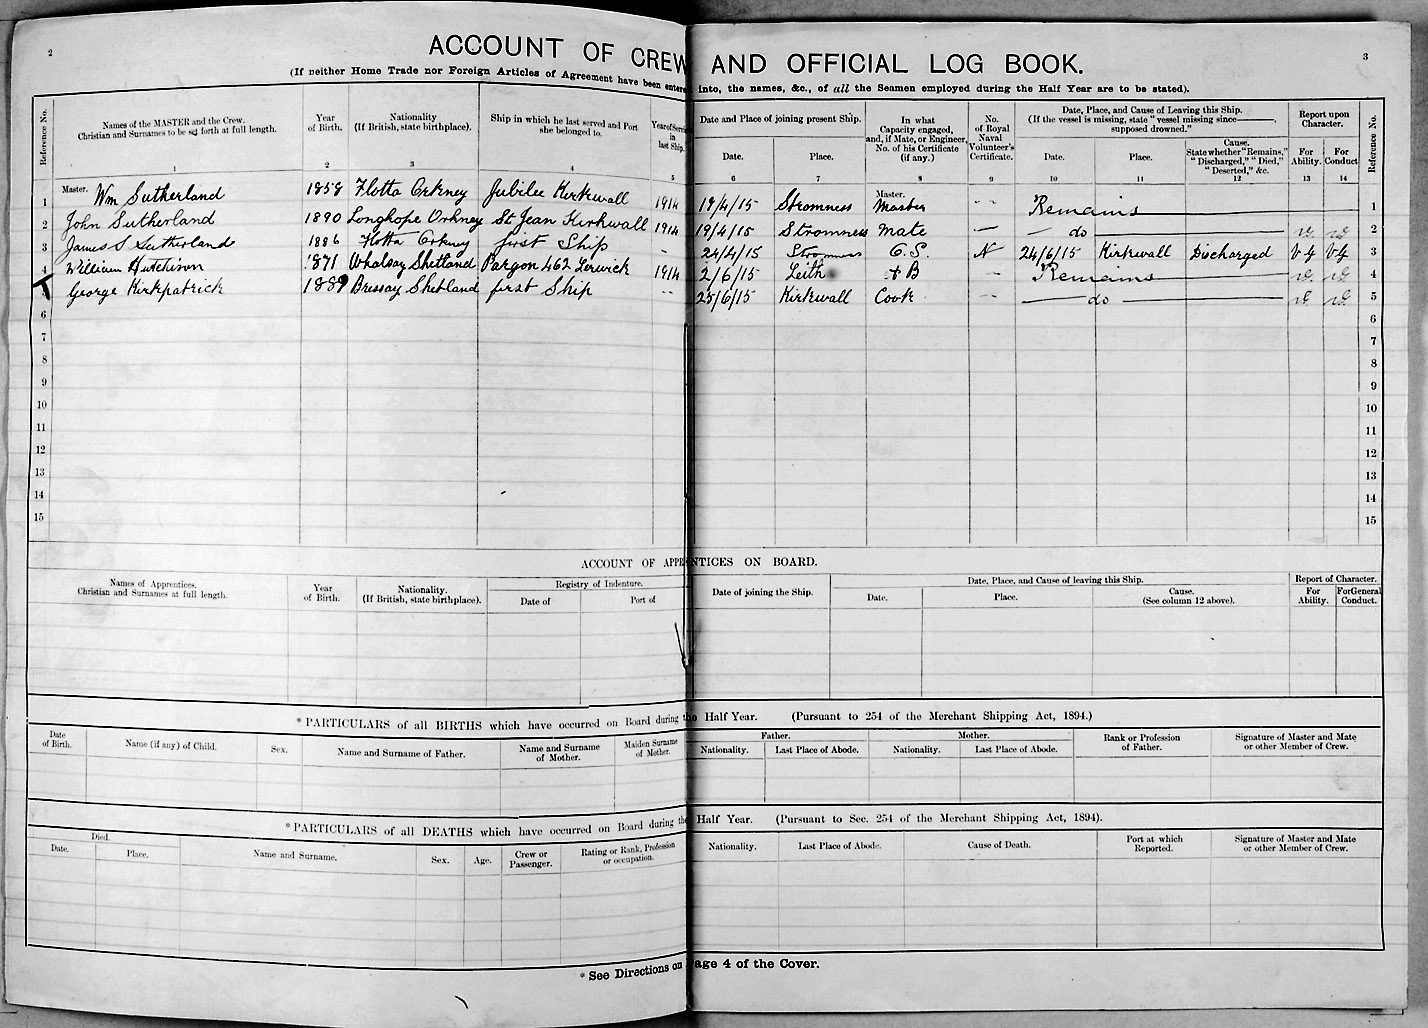 2
ACCOUNT OF CREW AND OFFICIAL LOG BOOK.
3
(If neither Home Trade nor Foreign Articles of Agreement have been entered into, the names, &c., of all the Seamen employed during the Half Year are to be stated).
Reference No.
Names of the MASTER and the Crew.
Christian and Surnames to be set forth at full length.
1
Year of Birth.
2
Nationality
(If British, state birthplace).
3
Ship in which he last served and Port she belonged to.
4
Year of Service in last Ship.
5
Date and Place of joining present Ship.
Date.
6
Place.
7
In what Capacity engaged, and, if Mate, or Engineer, No. of his Certificate (if any.)
8
No. of Royal Naval Volunteer's Certificate.
9
Date, Place, and Cause of Leaving this Ship.
(If the vessel is missing, state "vessel missing since———, supposed drowned."
Date.
10
Place.
11
Cause.
State whether "Remains," "Discharged," "Died," "Deserted," &c.
12
Report upon Character.
For Ability.
13
For Conduct
14
Reference No.
1 Master. Wm Sutherland 1858 Flotta Orkney Jubilee Kirkwall 1914 19/4/15 Stromness Master. Master " Remains 1
2 John Sutherland 1890 Longhope Orkney St Jean Kirkwall 1914 19/4/15 Stromness Mate — do 2
3 James S Sutherland 1886 Flotta Orkney first Ship 24/4/15 Stromness O.S. N 24/6/15 Kirkwall Discharged V.G V.G 3
4 William Hutchison 1871 Whalsay Shetland Pargon 462 Lerwick 1914 2/6/15 Leith A B " Remains 4
George Kirkpatrick 1889 Bressay Shetland first Ship " 25/6/15 Kirkwall Cook " do 5
6 6
7 7
8 8
9 9
10 10
11 11
12 12
13 13
14 14
15 15
ACCOUNT OF APPRENTICES ON BOARD.
Names of Apprentices.
Christian and Surnames at full length.
Year of Birth.
Nationality.
(If British, state birthplace).
Registry of Indenture.
Date of
Port of
Date of joining the Ship.
Date, Place, and Cause of leaving this Ship.
Date.
Place.
Cause.
(See column 12 above).
Report of Character.
For Ability.
For General Conduct.
* PARTICULARS of all BIRTHS which have occurred on Board during the Half Year. (Pursuant to 254 of the Merchant Shipping Act, 1894.)
Date of Birth.
Name (if any) of Child.
Sex.
Name and Surname of Father.
Name and Surname of Mother.
Maiden Surname of Mother.
Father.
Nationality.
Last Place of Abode.
Mother.
Nationality.
Last Place of Abode.
Rank or Profession of Father.
Signature of Master and Mate or other Member of Crew.
* PARTICULARS of all DEATHS which have occurred on Board during the Half Year. (Pursuant to Sec. 254 of the Merchant Shipping Act, 1894).
Died.
Date.
Place.
Name and Surname.
Sex.
Age.
Crew or Passenger.
Rating or Rank, Profession or occupation.
Nationality.
Last Place of Abode.
Cause of Death.
Port at which Reported.
Signature of Master and Mate or other Member of Crew.
* See Directions on Page 4 of the Cover.